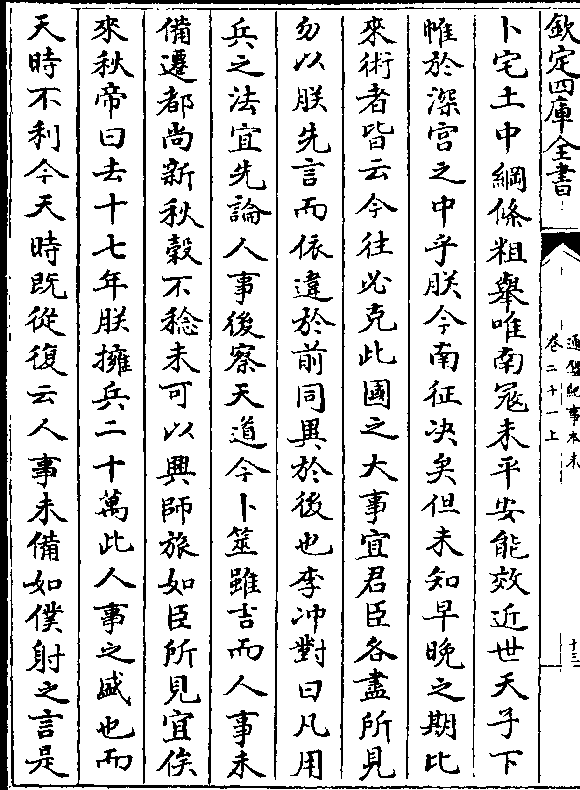 欽定四庫全書
通鑑紀事本末
卷二十一上
十三
卜宅土中綱條粗舉唯南寇未平安能效近世天子下
帷於深宫之中乎朕今南征决矣但未知早晚之期比
來術者皆云今往必克此國之大事宜君臣各盡所見
勿以朕先言而依違於前同異於後也李冲對曰凡用
兵之法宜先論人事後察天道今卜筮雖吉而人事未
備遷都尚新秋穀不稔未可以興師旅如臣所見宜俟
來秋帝曰去十七年朕擁兵二十萬此人事之盛也而
天時不利今天時既從復云人事未備如僕射之言是